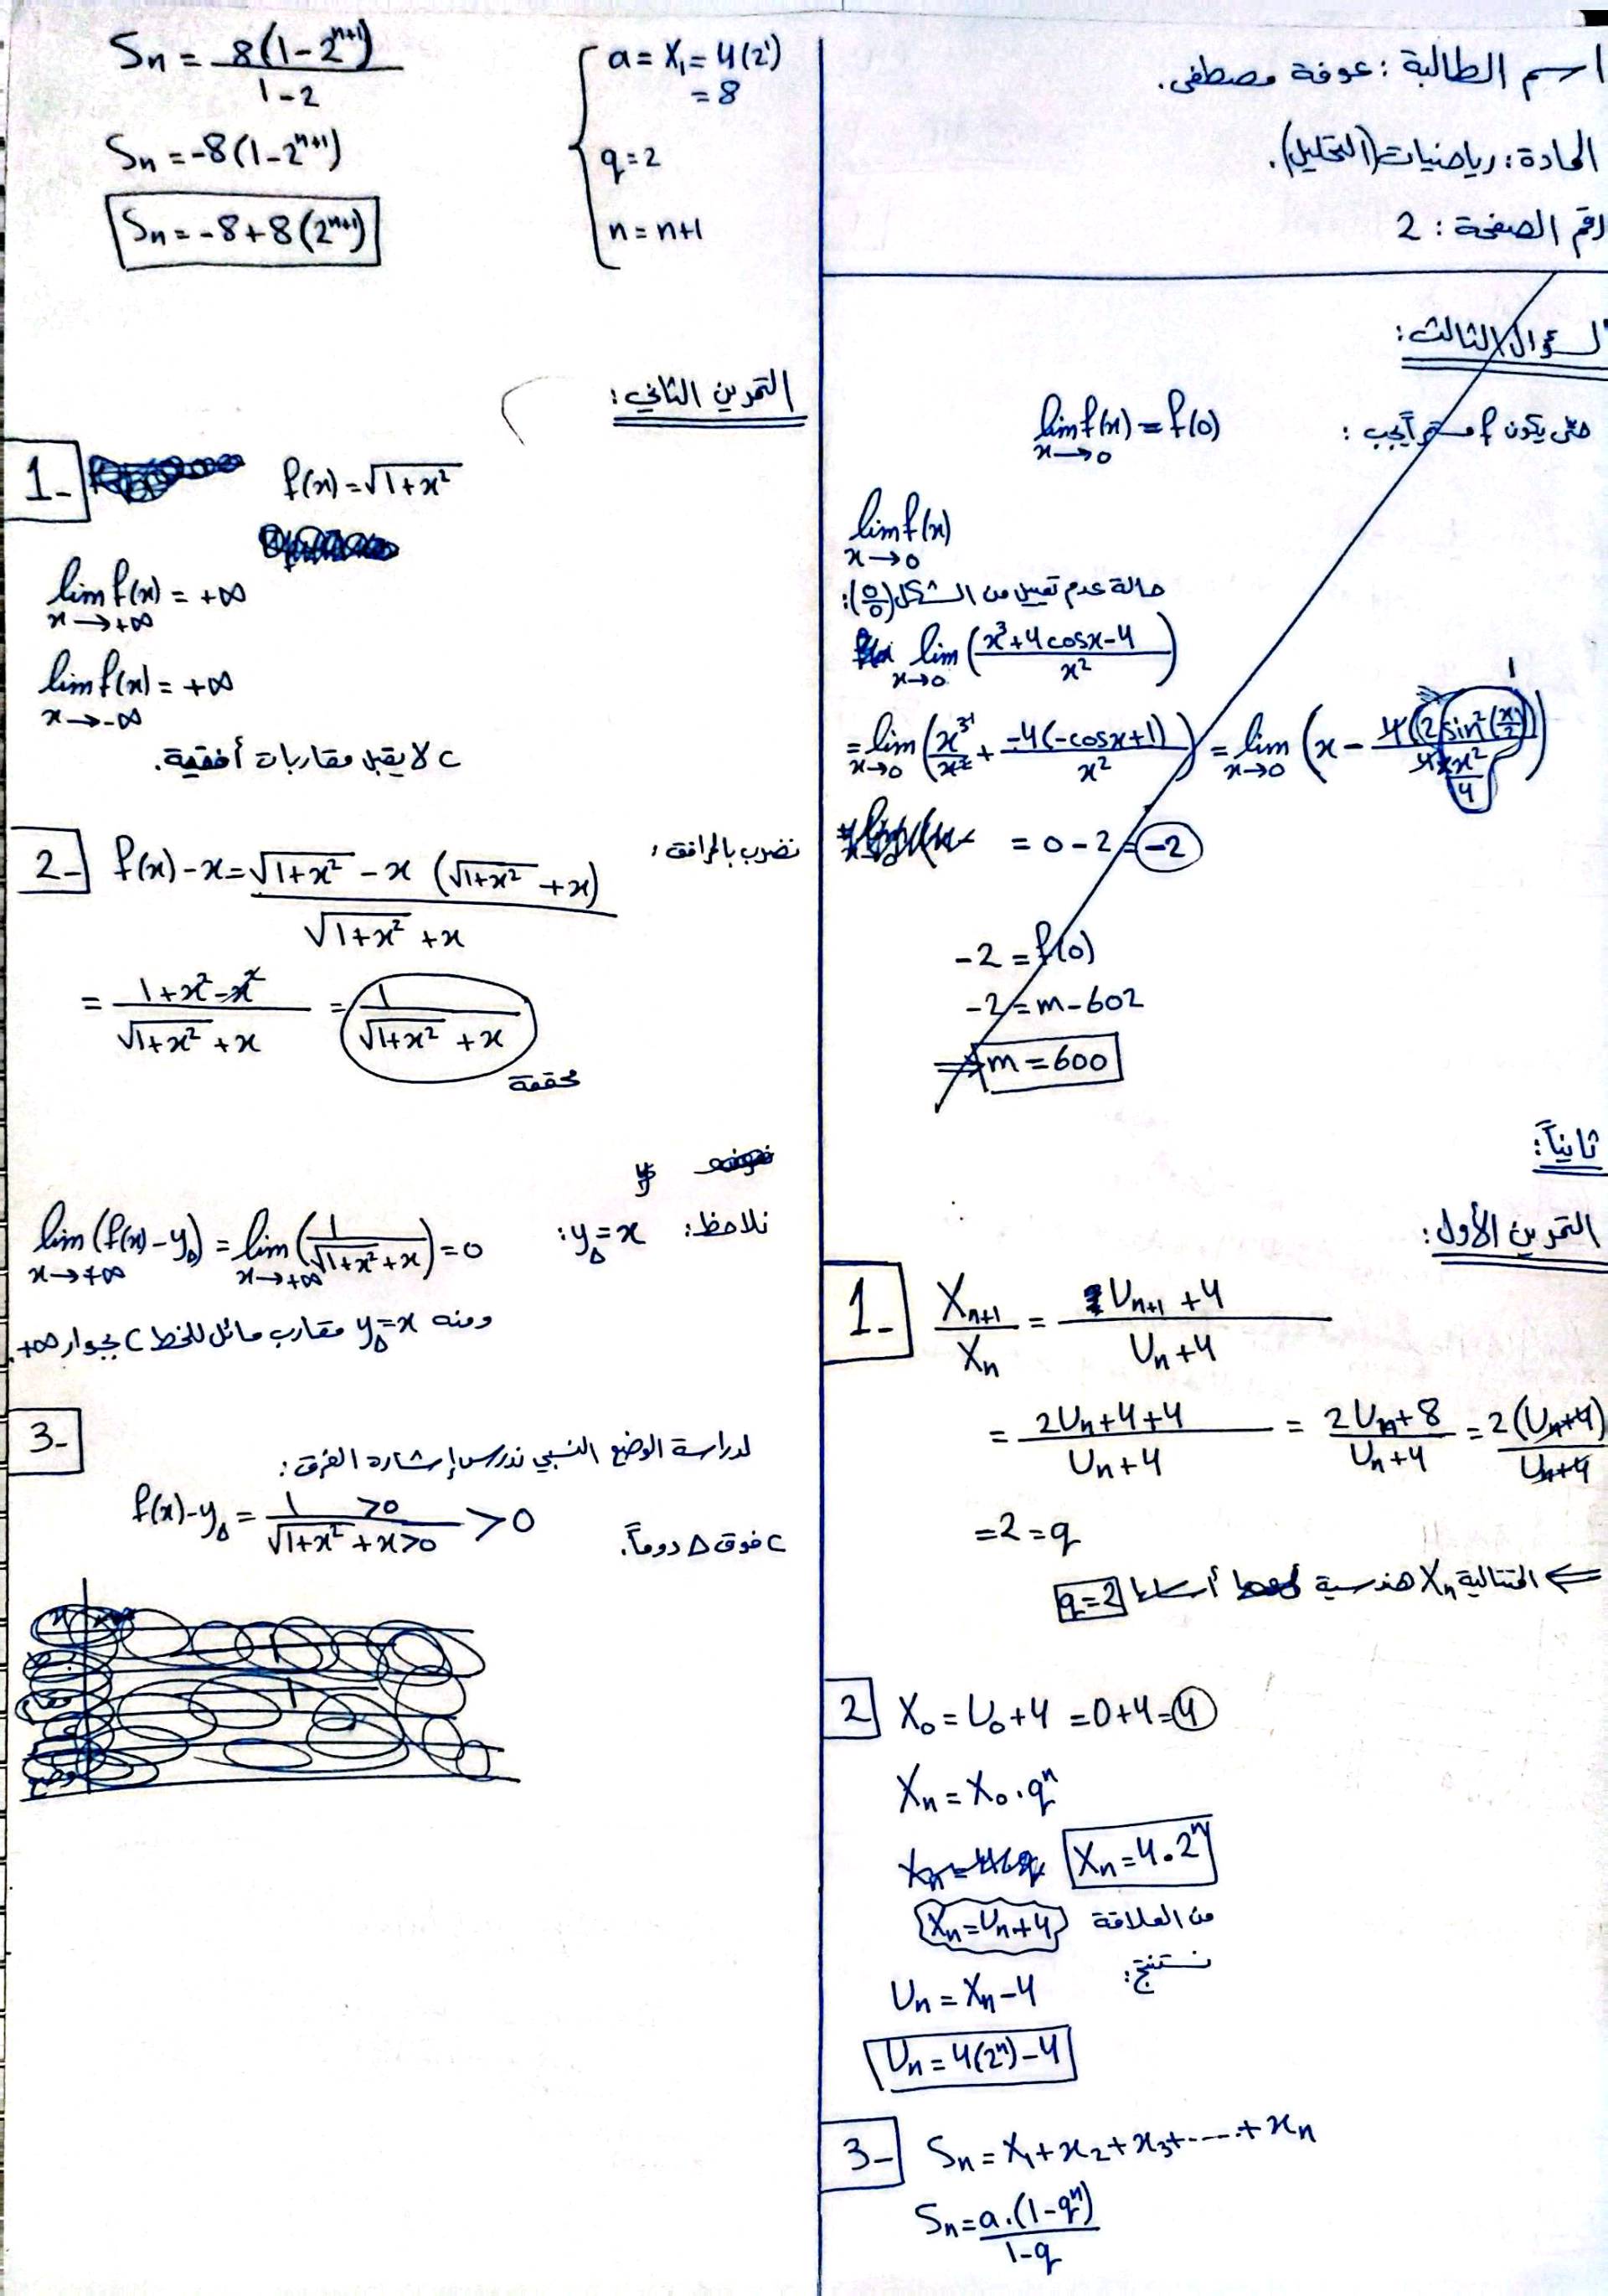 اسم الطالبة : عوفة مصطفى.
المادة : رياضيات (التحليل).
رقم الصفحة : 2
السؤال الثالث :
حتى يكون f مستمراً يجب : lim f(x) = f(0)
x→0
lim f(x)
x→0
حالة عدم تعيين من الشكل (0/0) :
lim (x³+4cosx-4 / x²)
x→0
= lim (x³/x² + -4(-cosx+1)/x²) = lim (x - 4(2sin²(x/2)) / 4×x²/4) 1
x→0 x→0
= 0 - 2 = -2
-2 = f(0)
-2 = m - 602
⇒ m = 600
ثانياً :
التمرين الأول :
1- X_{n+1}/X_n = U_{n+1}+4 / U_n+4
= 2U_n+4+4 / U_n+4 = 2U_n+8 / U_n+4 = 2(U_n+4) / U_n+4
=2 = q
⇐ المتتالية X_n هندسية أساسها q=2
2 X₀ = U₀+4 = 0+4 = 4
X_n = X₀ . qⁿ
X_n = 4 . 2ⁿ
من العلاقة X_n = U_n+4
نستنتج :
U_n = X_n - 4
U_n = 4(2ⁿ) - 4
3- S_n = X₁ + x₂ + x₃ + ..... + x_n
S_n = a.(1-qⁿ) / 1-q
S_n = 8(1-2^{n+1}) / 1-2
S_n = -8(1-2^{n+1})
S_n = -8+8(2^{n+1})
a = X₁ = 4(2¹)
= 8
q = 2
n = n+1
التمرين الثاني :
1- f(x) = √(1+x²)
lim f(x) = +∞
x→+∞
lim f(x) = +∞
x→-∞
C لا يقبل مقاربات أفقية.
2- f(x) - x = √(1+x²) - x (√(1+x²) + x) / √(1+x²) + x نضرب بالمرافق :
= 1+x²-x² / √(1+x²) + x = 1 / √(1+x²) + x
محققة
نلاحظ : y_Δ = x :
lim (f(x) - y_Δ) = lim (1 / √(1+x²) + x) = 0
x→+∞ x→+∞
ومنه y_Δ = x مقارب مائل للخط C بجوار +∞.
3- لدراسة الوضع النسبي ندرس إشارة الفرق :
f(x) - y_Δ = 1 >0 / √(1+x²) + x >0 > 0
C فوق Δ دوماً.